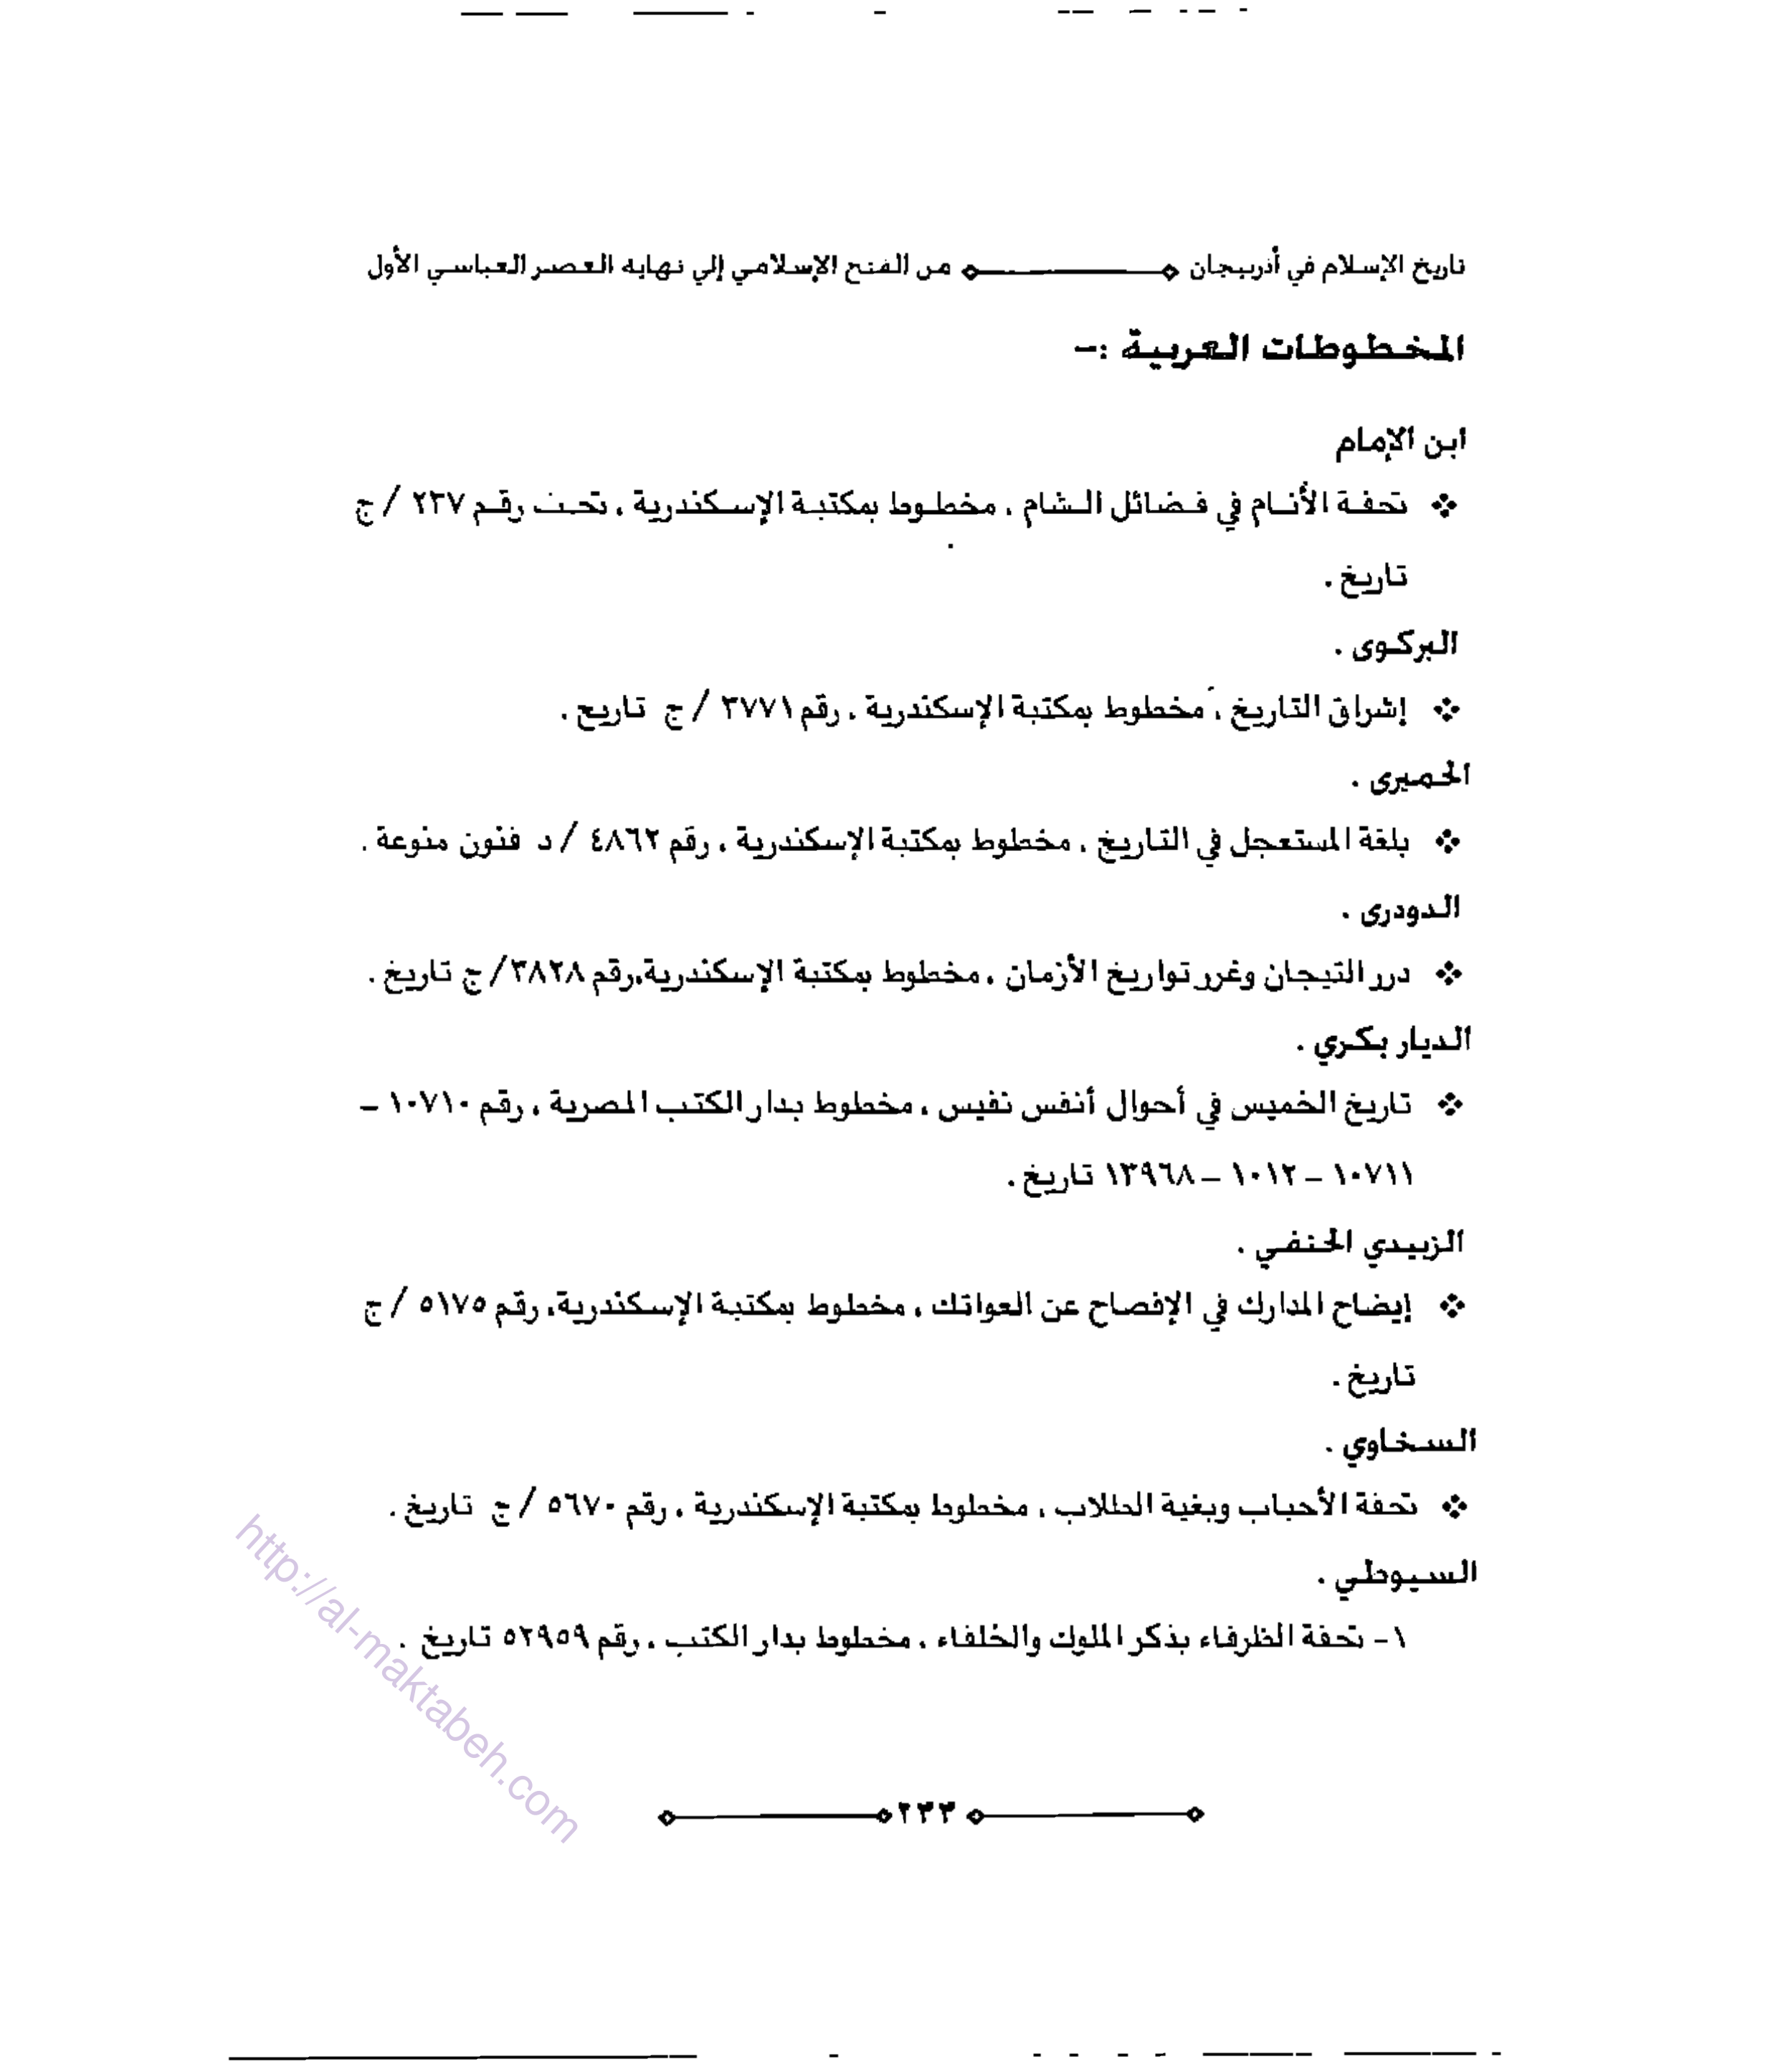 تاريخ الإسلام في أذربيجان من الفتح الإسلامي إلي نهاية العصر العباسي الأول
المخطوطات العربية :-
ابن الإمام
❖ تحفة الأنام في فضائل الشام ، مخطوط بمكتبة الإسكندرية ، تحت رقم ٢٣٧ / ج
تاريخ .
البركوى .
❖ إشراق التاريخ ، مخطوط بمكتبة الإسكندرية ، رقم ٣٧٧١ / ج تاريخ .
الحميرى .
❖ بلغة المستعجل في التاريخ ، مخطوط بمكتبة الإسكندرية ، رقم ٤٨٦٢ / د فنون منوعة .
الدودرى .
❖ درر التيجان وغرر تواريخ الأزمان ، مخطوط بمكتبة الإسكندرية،رقم ٣٨٢٨/ ج تاريخ .
الديار بكري .
❖ تاريخ الخميس في أحوال أنفس نفيس ، مخطوط بدار الكتب المصرية ، رقم ١٠٧١٠ –
١٠٧١١ – ١٠١٢ – ١٣٩٦٨ تاريخ .
الزبيدي الحنفي .
❖ إيضاح المدارك في الإفصاح عن العواتك ، مخطوط بمكتبة الإسكندرية، رقم ٥١٧٥ / ج
تاريخ .
السخاوي .
❖ تحفة الأحباب وبغية الطلاب ، مخطوط بمكتبة الإسكندرية ، رقم ٥٦٧٠ / ج تاريخ .
السيوطي .
١- تحفة الظرفاء بذكر الملوك والخلفاء ، مخطوط بدار الكتب ، رقم ٥٢٩٥٩ تاريخ .
٢٣٣
http://al-maktabeh.com